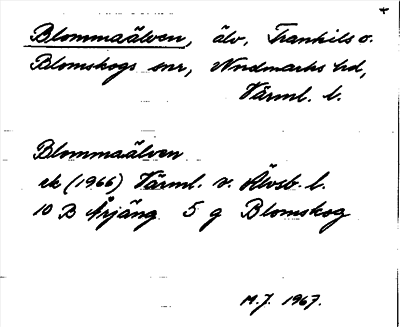 Blommaälven, älv, Trankils o.
Blomskogs snr, Nordmarks hd,
Värml. l.
Blommaälven
ek (1966) Värml. o. Älvsb. l.
10 B Årjäng 5 g Blomskog
M.J. 1967.